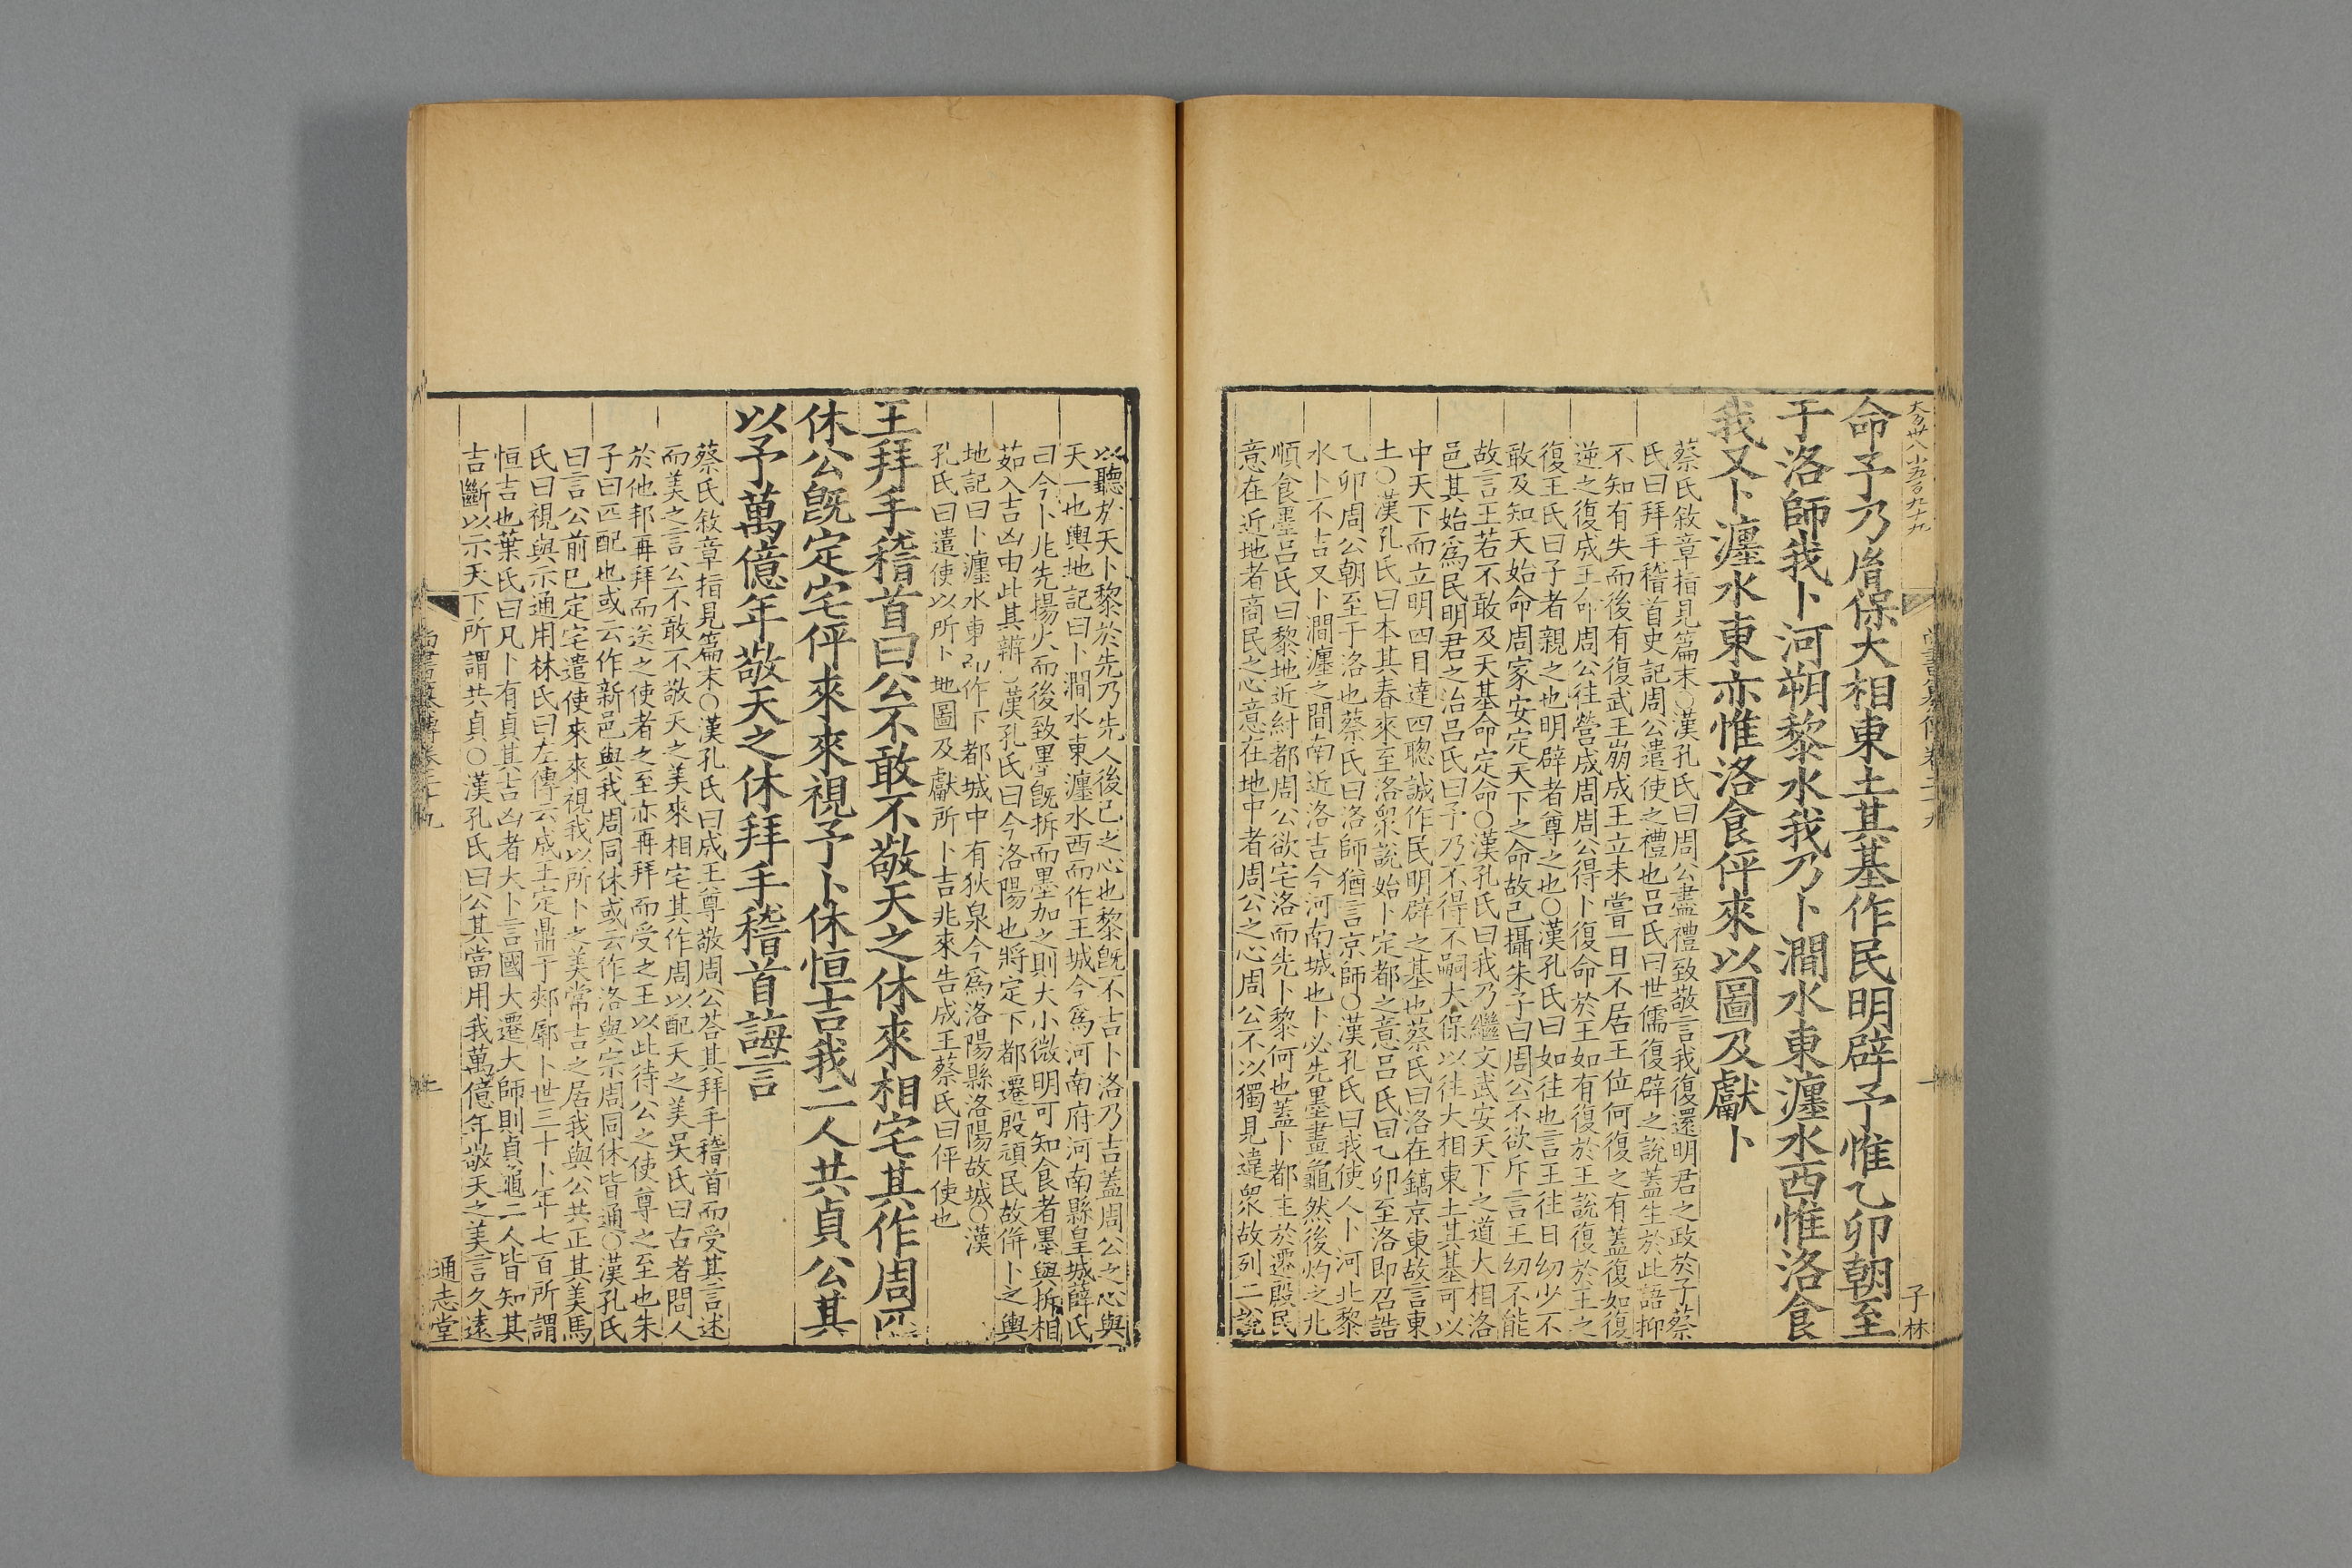 命予乃胤保大相東土其基作民明辟予惟乙卯朝至
于洛師我卜河朔黎水我乃卜澗水東瀍水西惟洛食
我又卜瀍水東亦惟洛食伻來以圖及獻卜
蔡氏敘章指見篇末○漢孔氏曰周公盡禮致敬言我復還明君之政於子蔡
氏曰拜手稽首史記周公遣使之禮也呂氏曰世儒復辟之說蓋生於此語抑
不知有失而後有復武王崩成王立未嘗一日不居王位何復之有蓋復如復
逆之復成王命周公往營成周周公得卜復命於王如有復於王說復於王之
復王氏曰子者親之也明辟者尊之也○漢孔氏曰如往也言王往日幼少不
敢及知天始命周家安定天下之命故己攝朱子曰周公不欲斥言王幼不能
故言王若不敢及天基命定命○漢孔氏曰我乃繼文武安天下之道大相洛
邑其始爲民明君之治呂氏曰予乃不得不嗣大保以往大相東土其基可以
中天下而立明四目達四聰誠作民明辟之基也蔡氏曰洛在鎬京東故言東
土○漢孔氏曰本其春來至洛衆說始卜定都之意呂氏曰乙卯至洛即召誥
乙卯周公朝至于洛也蔡氏曰洛師猶言京師○漢孔氏曰我使人卜河北黎
水卜不吉又卜澗瀍之間南近洛吉今河南城也卜必先墨畫龜然後灼之兆
順食墨呂氏曰黎地近紂都周公欲宅洛而先卜黎何也蓋卜都主於遷殷民
意在近地者商民之心意在地中者周公之心周公不以獨見違衆故列二說
子林
以聽於天卜黎於先乃先人後己之心也黎既不吉卜洛乃吉蓋周公之心與
天一也輿地記曰卜澗水東瀍水西而作王城今爲河南府河南縣皇城薛氏
曰今卜兆先揚火而後致墨旣拆而墨加之則大小微明可知食者墨與拆相
茹入吉凶由此其辨○漢孔氏曰今洛陽也將定下都遷殷頑民故併卜之輿
地記曰卜瀍水東而作下都城中有狄泉今爲洛陽縣洛陽故城○漢
孔氏曰遣使以所卜地圖及獻所卜吉兆來告成王蔡氏曰伻使也
王拜手稽首曰公不敢不敬天之休來相宅其作周匹
休公旣定宅伻來來視予卜休恒吉我二人共貞公其
以予萬億年敬天之休拜手稽首誨言
蔡氏敘章指見篇末○漢孔氏曰成王尊敬周公荅其拜手稽首而受其言述
而美之言公不敢不敬天之美來相宅其作周以配天之美吳氏曰古者問人
於他邦再拜而送之使者之至亦再拜而受之王以此待公之使尊之至也朱
子曰匹配也或云作新邑與我周同休或云作洛與宗周同休皆通○漢孔氏
曰言公前已定宅遣使來來視我以所卜之美常吉之居我與公共正其美馬
氏曰視與示通用林氏曰左傳云成王定鼎于郟鄏卜世三十卜年七百所謂
恒吉也葉氏曰凡卜有貞其吉凶者大卜言國大遷大師則貞龜二人皆知其
吉斷以示天下所謂共貞○漢孔氏曰公其當用我萬億年敬天之美言久遠
尚書纂傳卷二十九
十一
通志堂